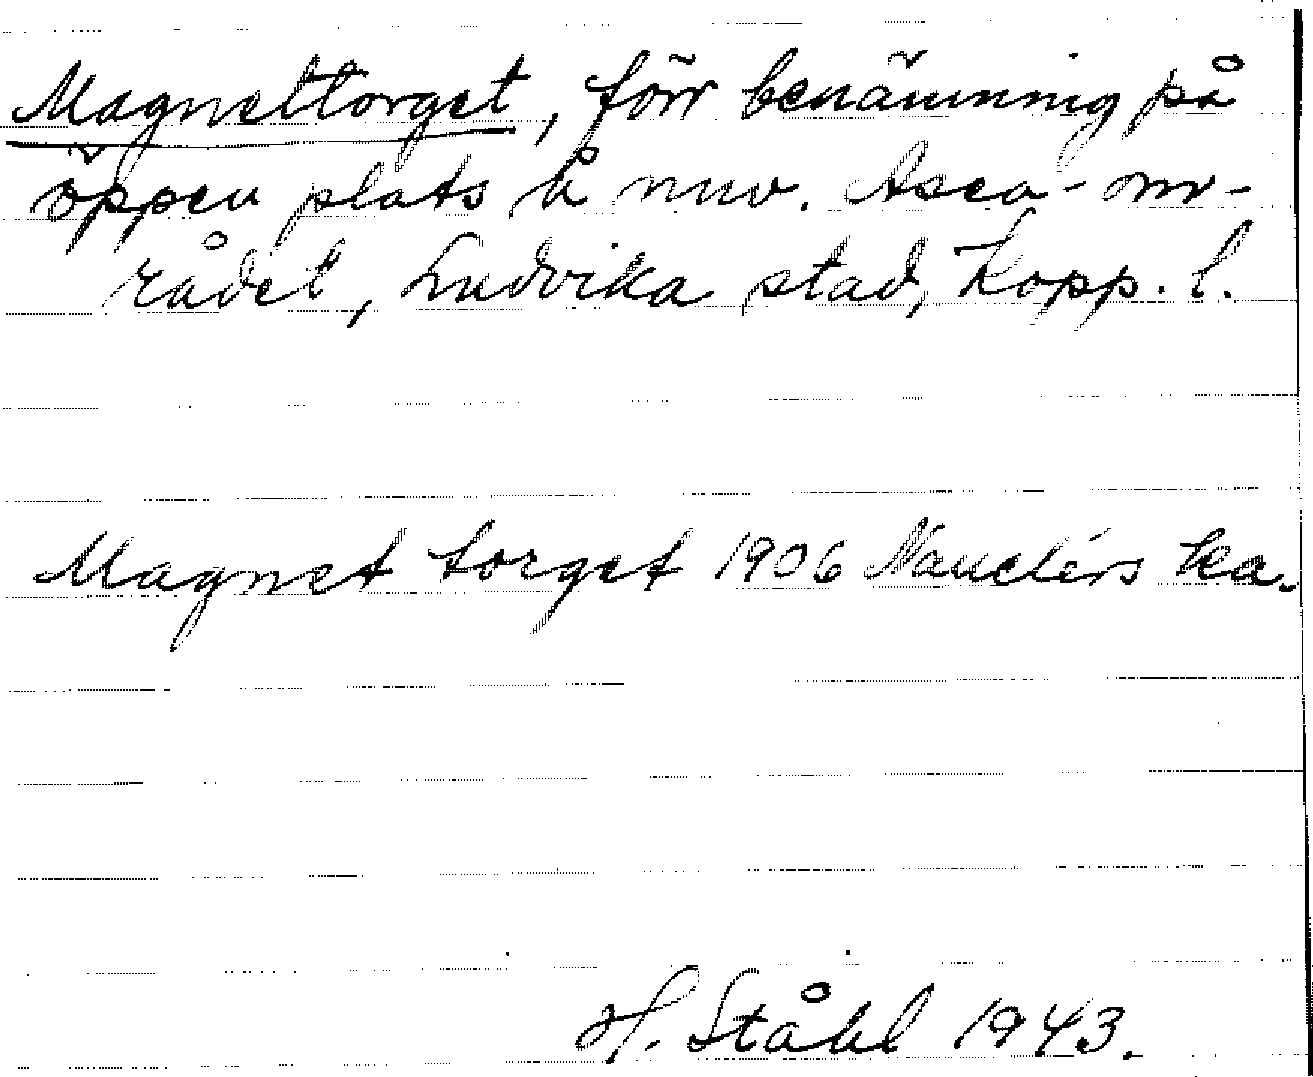 Magnettorget, förr benämning på
öppen plats å nuv. Asea-om-
rådet, Ludvika stad, Kopp. l.
Magnet torget 1906 Nauclérs ka.
H. Ståhl 1943.